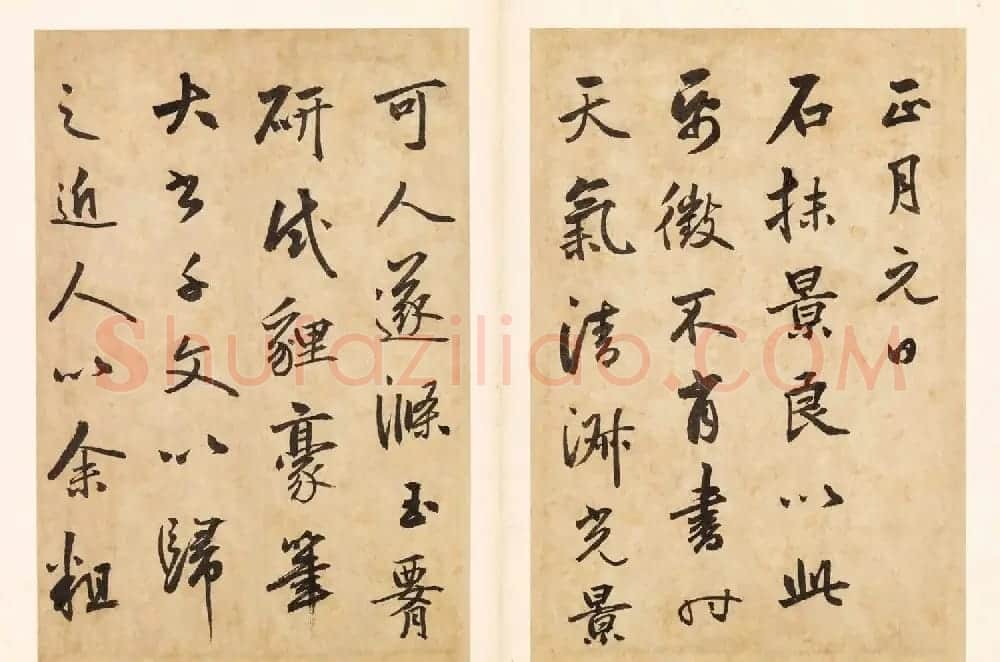 正月元日
石抹景良以此
帋徵不肖書时
天氣清淑光景
可人遂滌玉
研試貍豪筆
大書千文以歸
之近人以余粗
Shufaziliao.COM